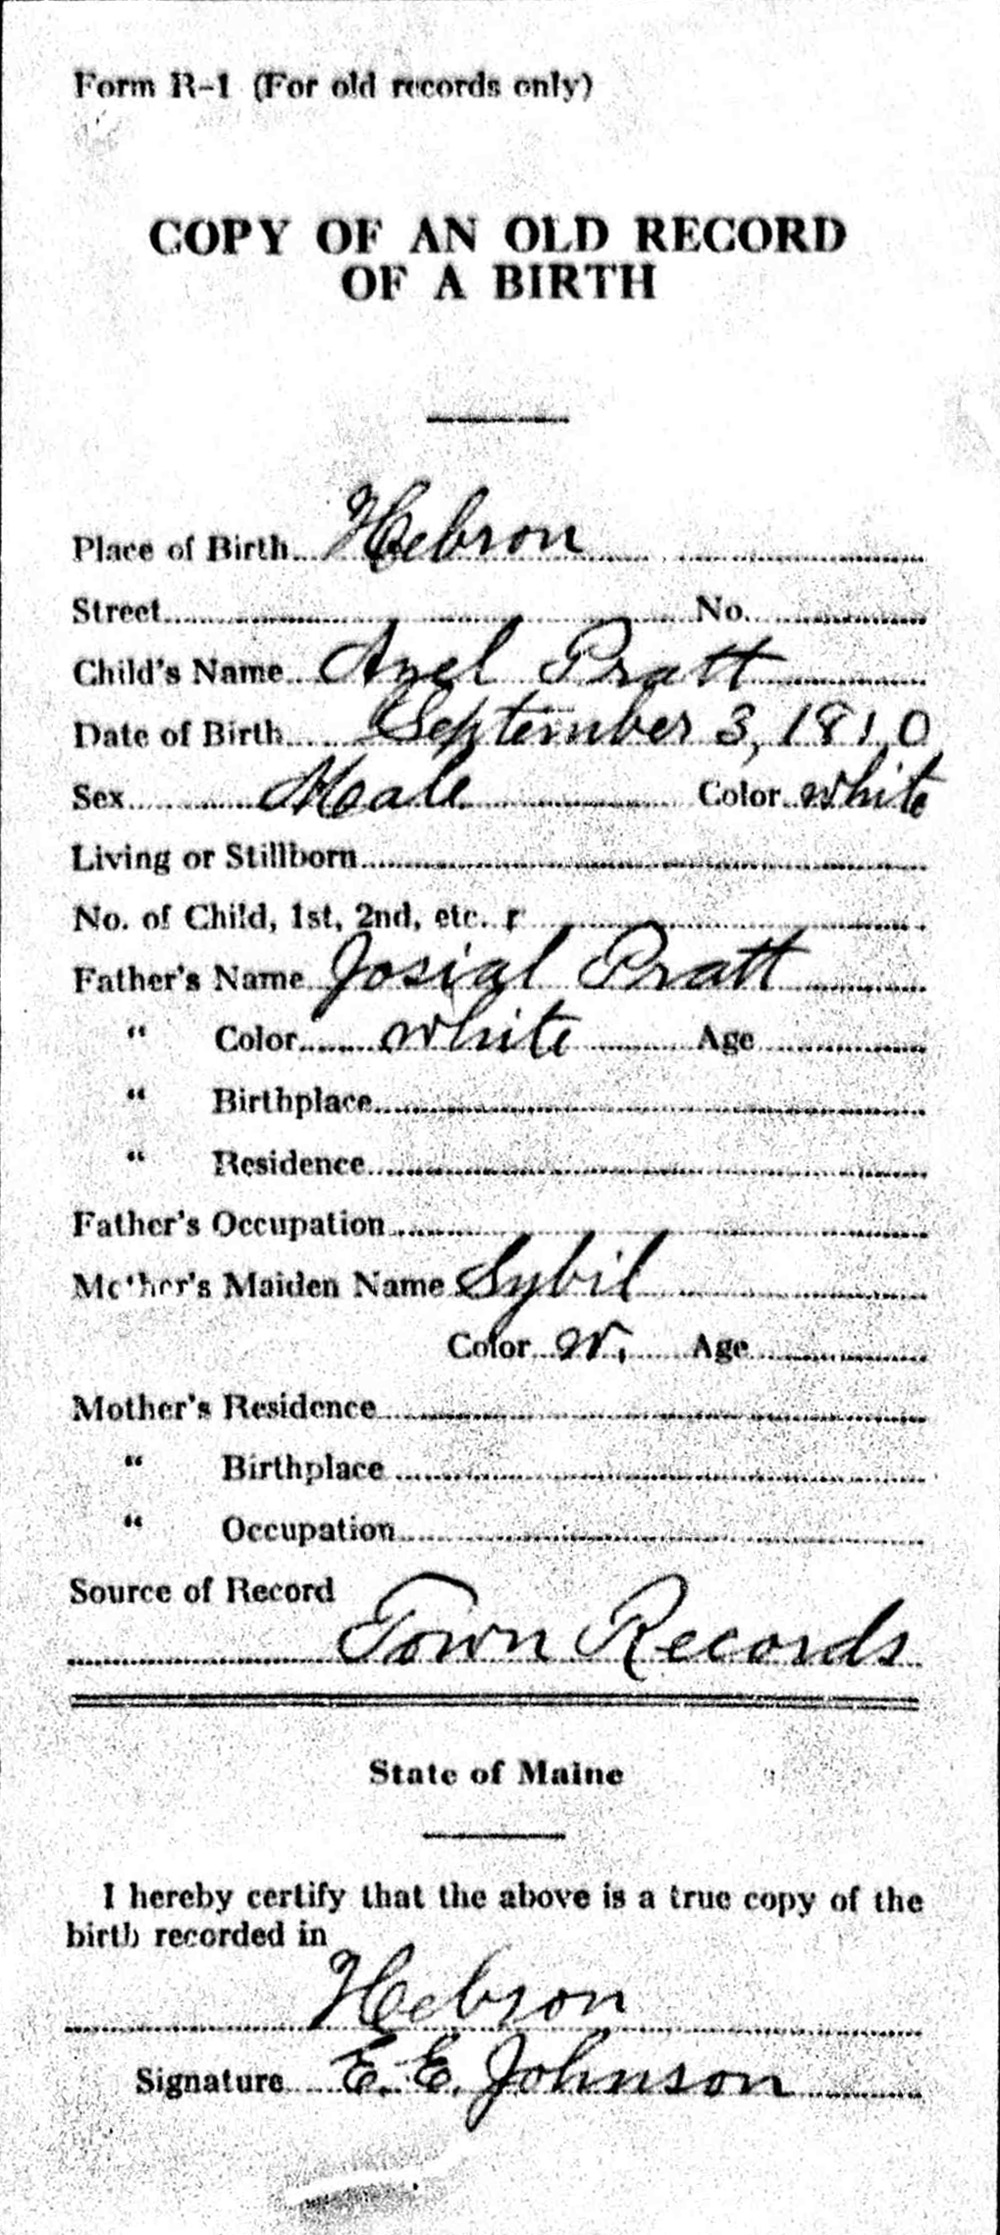 Form R-1 (For old records only)
COPY OF AN OLD RECORD
OF A BIRTH
Place of Birth Hebron
Street No.
Child's Name Azel Pratt
Date of Birth September 3, 1810
Sex Male Color white
Living or Stillborn
No. of Child, 1st, 2nd, etc. r
Father's Name Josial Pratt
" Color white Age
" Birthplace
" Residence
Father's Occupation
Mother's Maiden Name Sybil
Color W. Age
Mother's Residence
" Birthplace
" Occupation
Source of Record
Town Records
State of Maine
I hereby certify that the above is a true copy of the
birth recorded in
Hebron
Signature E. E. Johnson